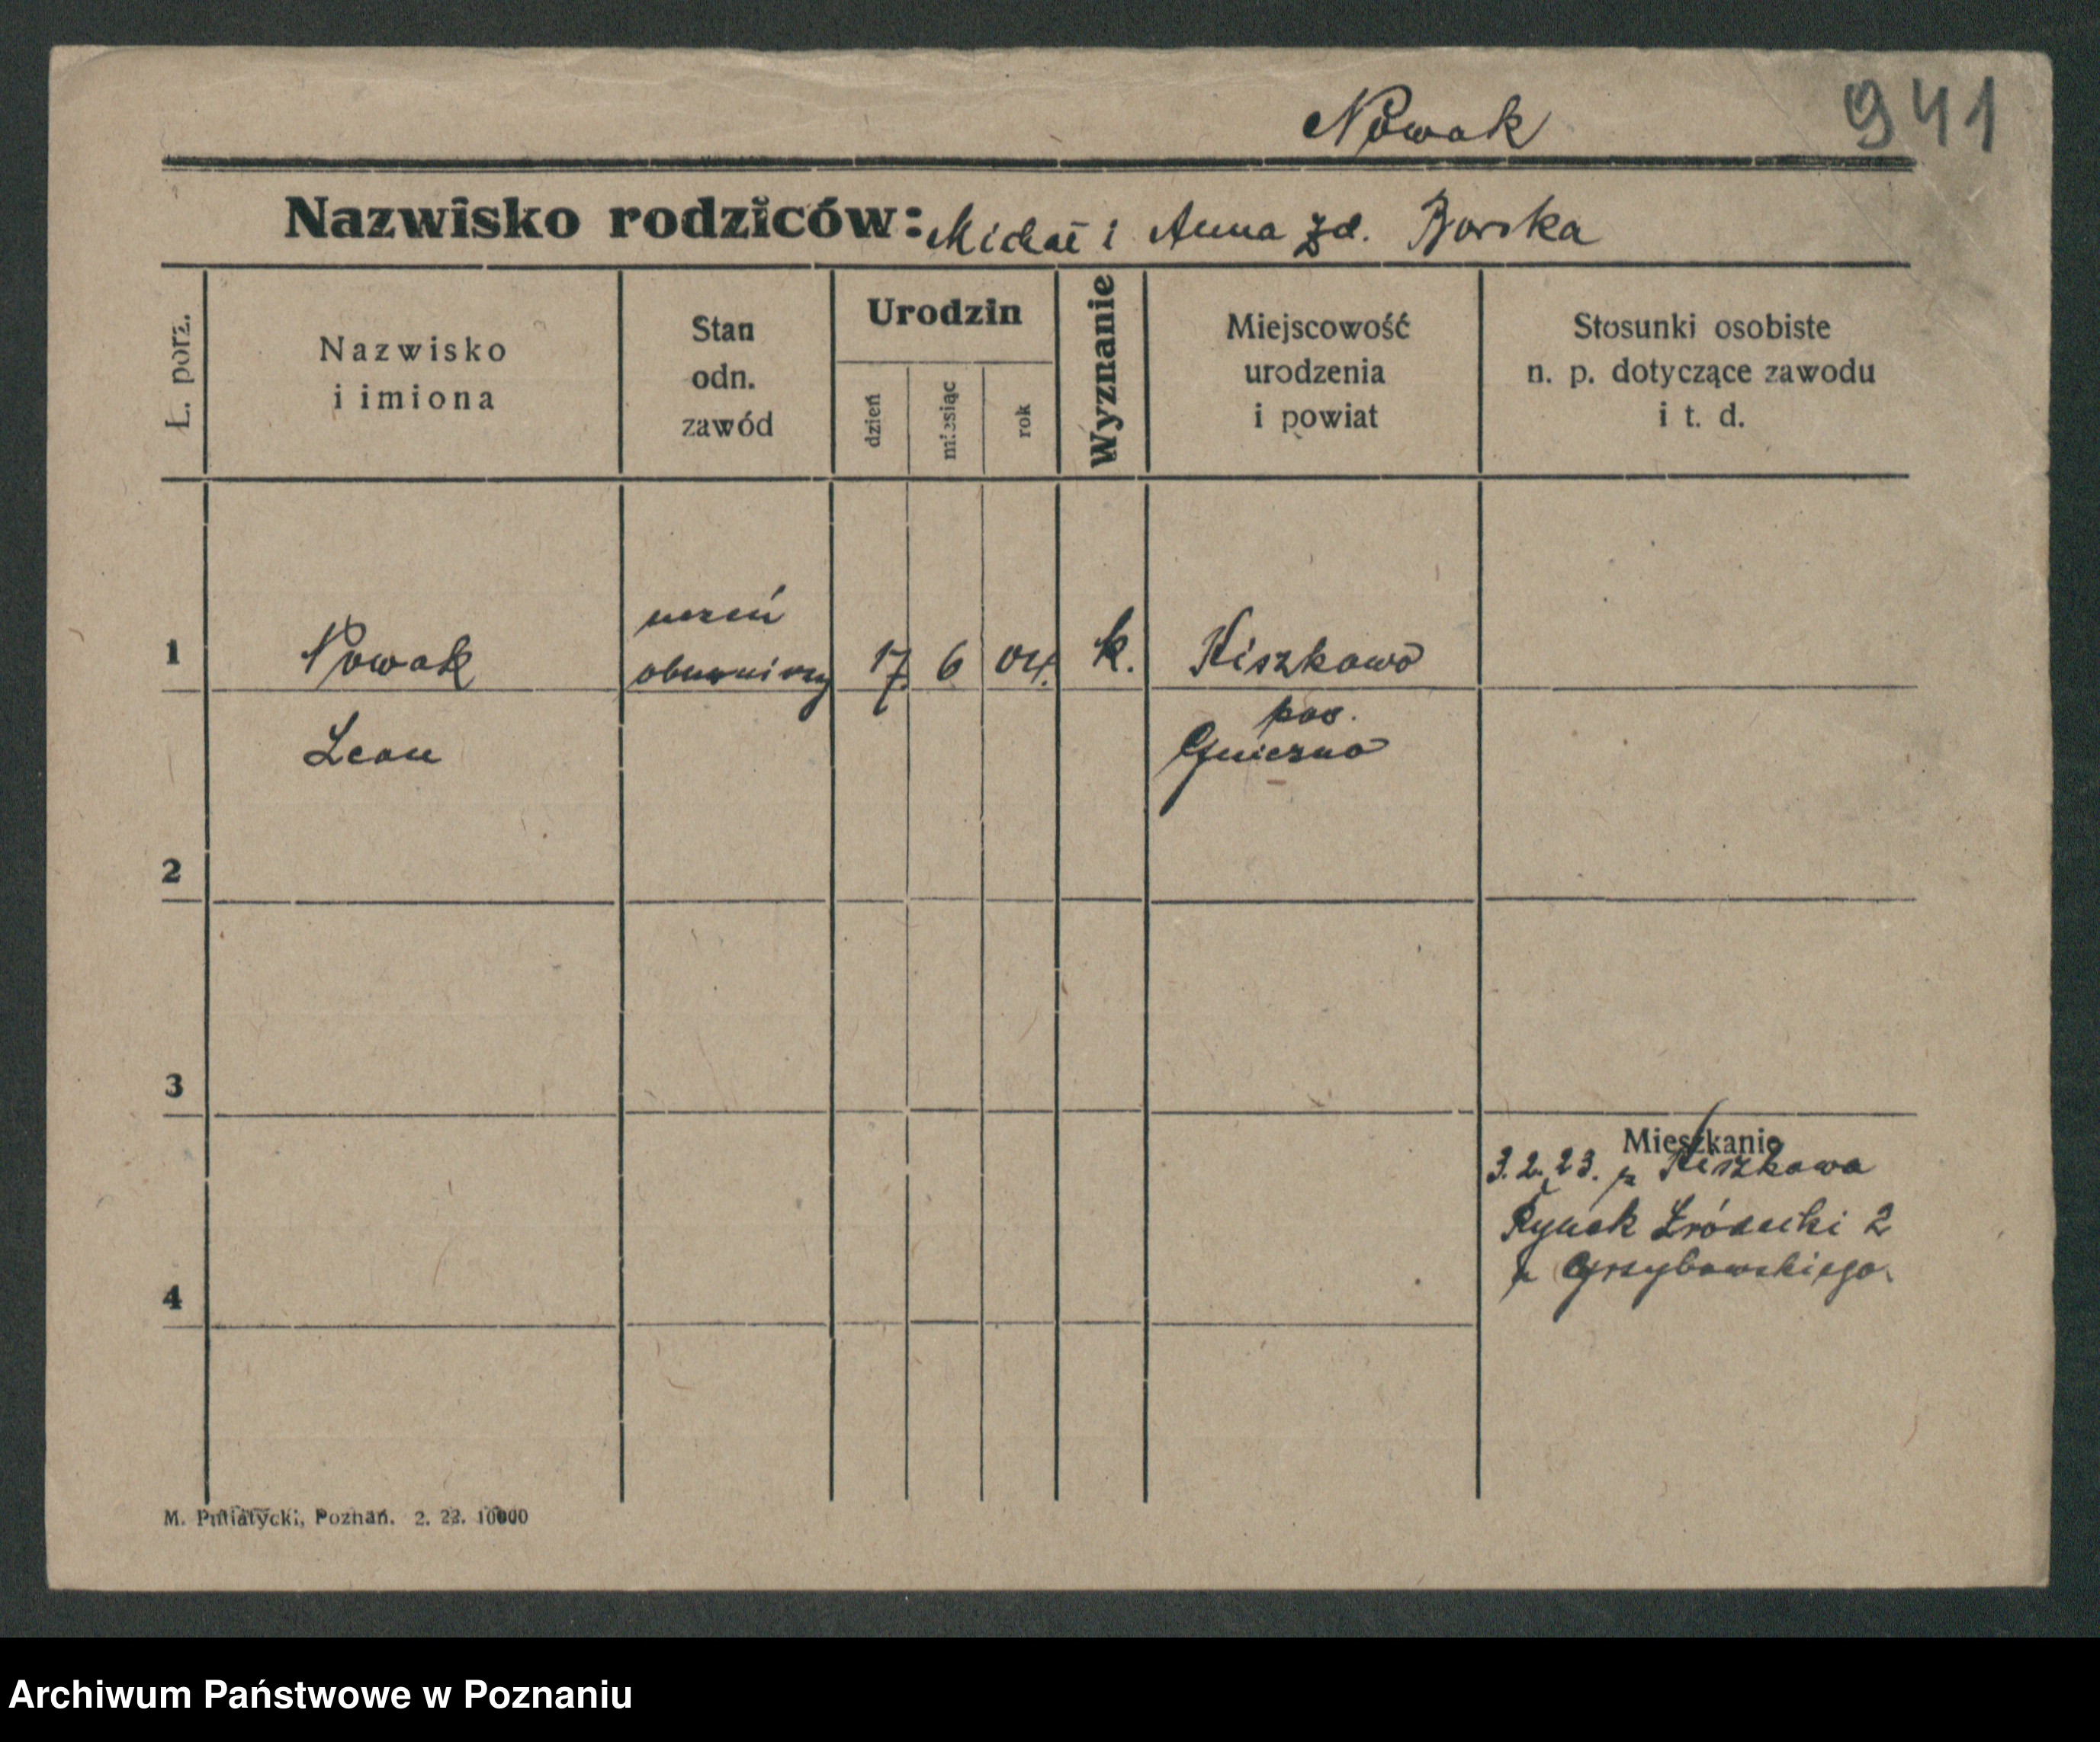 Nowak
941
Nazwisko rodziców: Michał i Anna zd. Borska
Ł. porz.
Nazwisko
i imiona
Stan
odn.
zawód
Urodzin
dzień
miesiąc
rok
Wyznanie
Miejscowość
urodzenia
i powiat
Stosunki osobiste
n. p. dotyczące zawodu
i t. d.
uczeń
1 Nowak obuwniczy 17. 6 04. k. Kiszkowo
pow.
Leon Gniezno
2
3
Mieszkanie
3.2.23. z Kiszkowa
Rynek Śródecki 2
4 u Grzybowskiego.
M. Putiatycki, Poznań. 2. 22. 10000
Archiwum Państwowe w Poznaniu